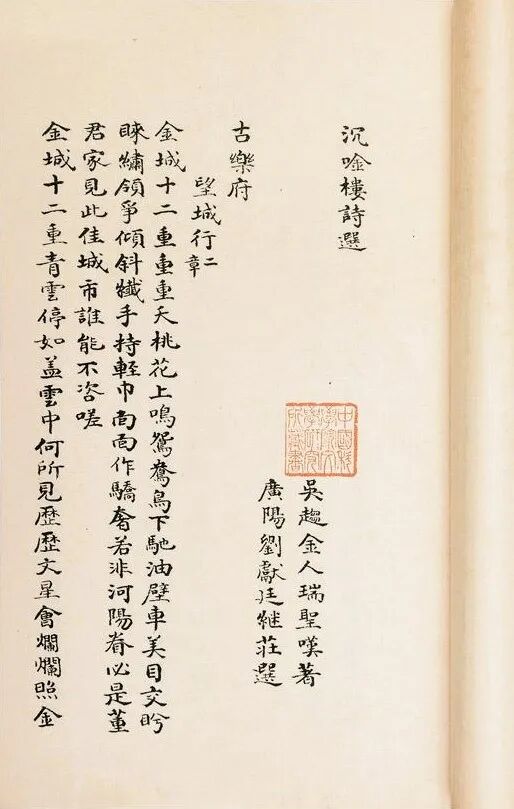 沉唫樓詩選
吳趨金人瑞聖嘆著
廣陽劉獻廷継莊選
古樂府
望城行二章
金城十二重重重夭桃花上鳴鴛鴦鳥下馳油壁車美目交盻
睞繡領爭傾斜纖手持輕巾面面作驕奢若非河陽眷必是董
君家見此佳城市誰能不咨嗟
金城十二重青雲停如盖雲中何所見歷歷文星會爛爛照金